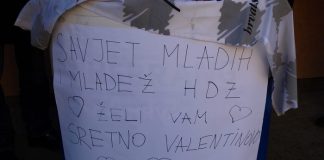 SAVJET MLADIH
I MLADEŽ HDZ
ŽELI VAM
SRETNO VALENTINOVO